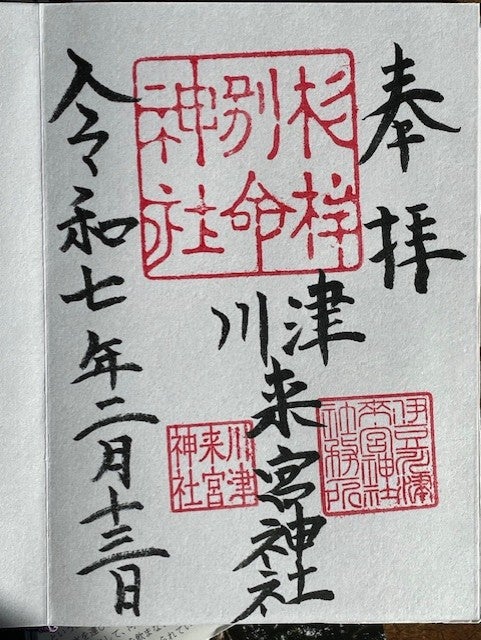 奉拝
杉桙別命神社
川津
来宮神社
来宮神社
社務所
川津
来宮
神社
令和七年二月十三日